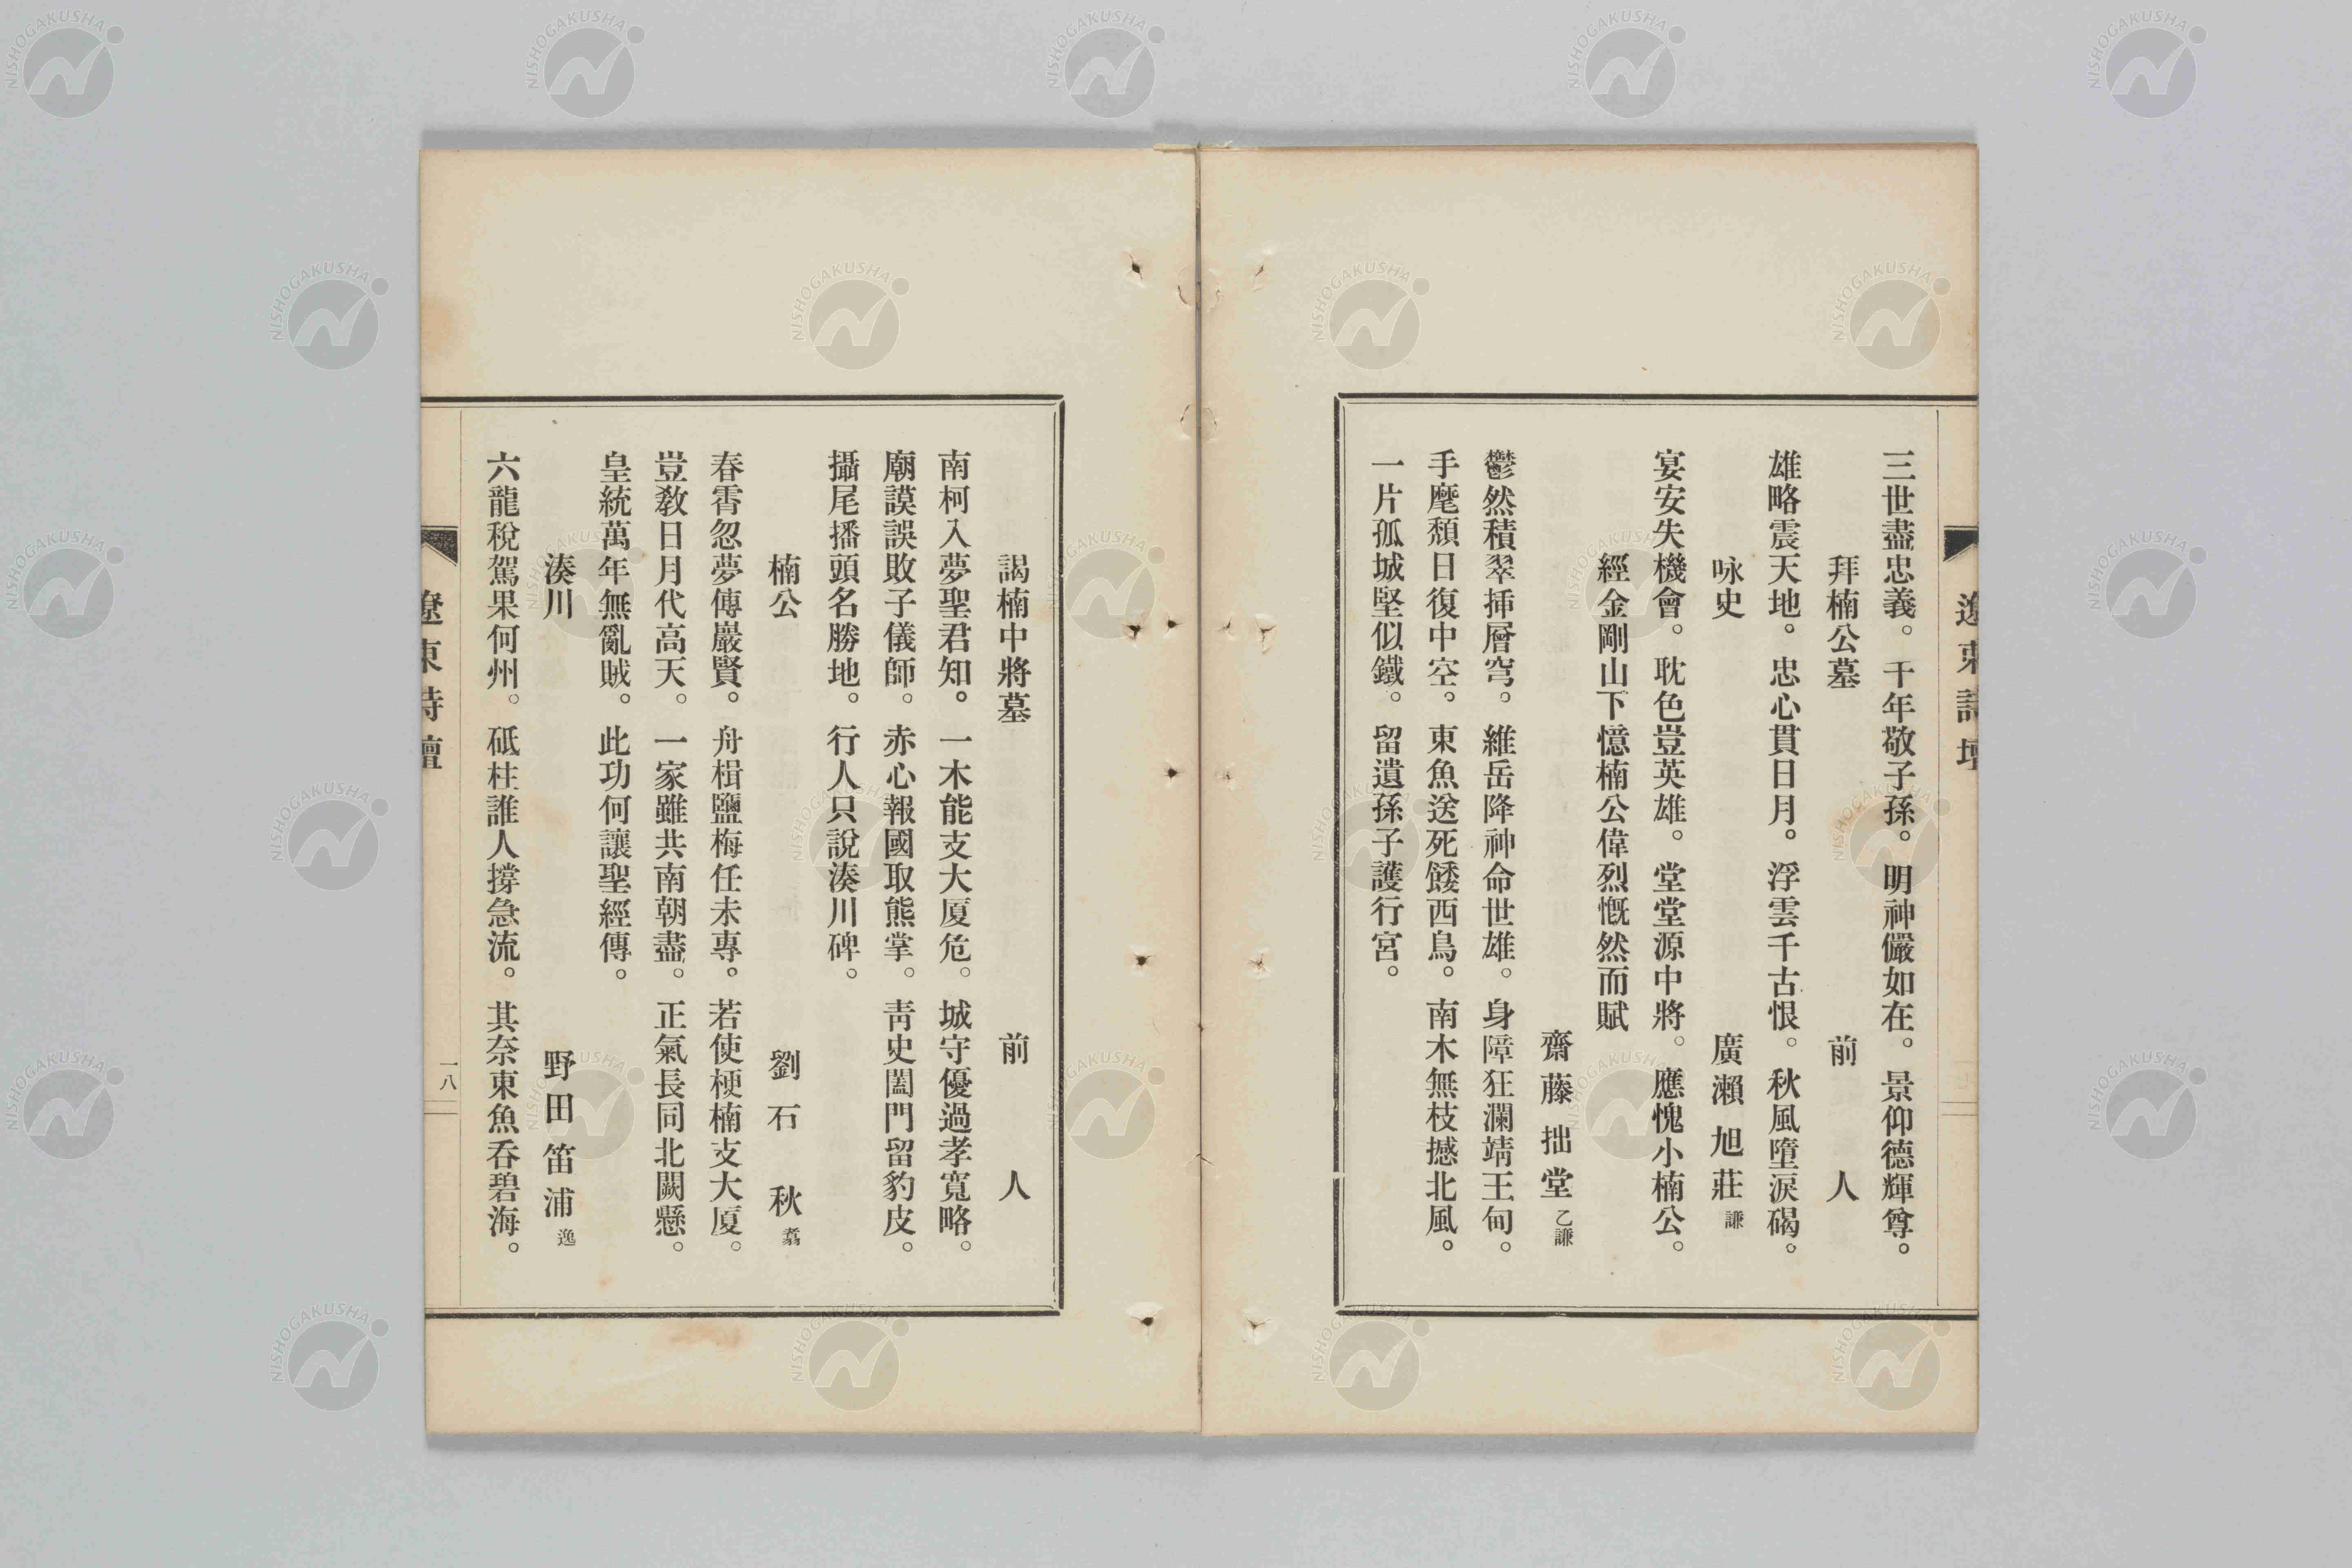 遼東詩壇
三世盡忠義。千年敬子孫。明神儼如在。景仰德輝尊。
拜楠公墓　前人
雄略震天地。忠心貫日月。浮雲千古恨。秋風墮淚碣。
咏史　廣瀨旭莊 謙
宴安失機會。耽色豈英雄。堂堂源中將。應愧小楠公。
經金剛山下憶楠公偉烈慨然而賦
齋藤拙堂 乙謙
鬱然積翠挿層穹。維岳降神命世雄。身障狂瀾靖王甸。
手麾頹日復中空。東魚送死餧西鳥。南木無枝撼北風。
一片孤城堅似鐵。留遺孫子護行宮。
謁楠中將墓　前人
南柯入夢聖君知。一木能支大厦危。城守優過孝寬略。
廟謨誤敗子儀師。赤心報國取熊掌。靑史闔門留豹皮。
攝尾播頭名勝地。行人只說湊川碑。
楠公　劉石秋 翥
春霄忽夢傳巖賢。舟楫鹽梅任未專。若使梗楠支大厦。
豈敎日月代高天。一家雖共南朝盡。正氣長同北闕懸。
皇統萬年無亂賊。此功何讓聖經傳。
湊川　野田笛浦 逸
六龍稅駕果何州。砥柱誰人撐急流。其奈東魚呑碧海。
遼東詩壇
一八
NISHOGAKUSHA